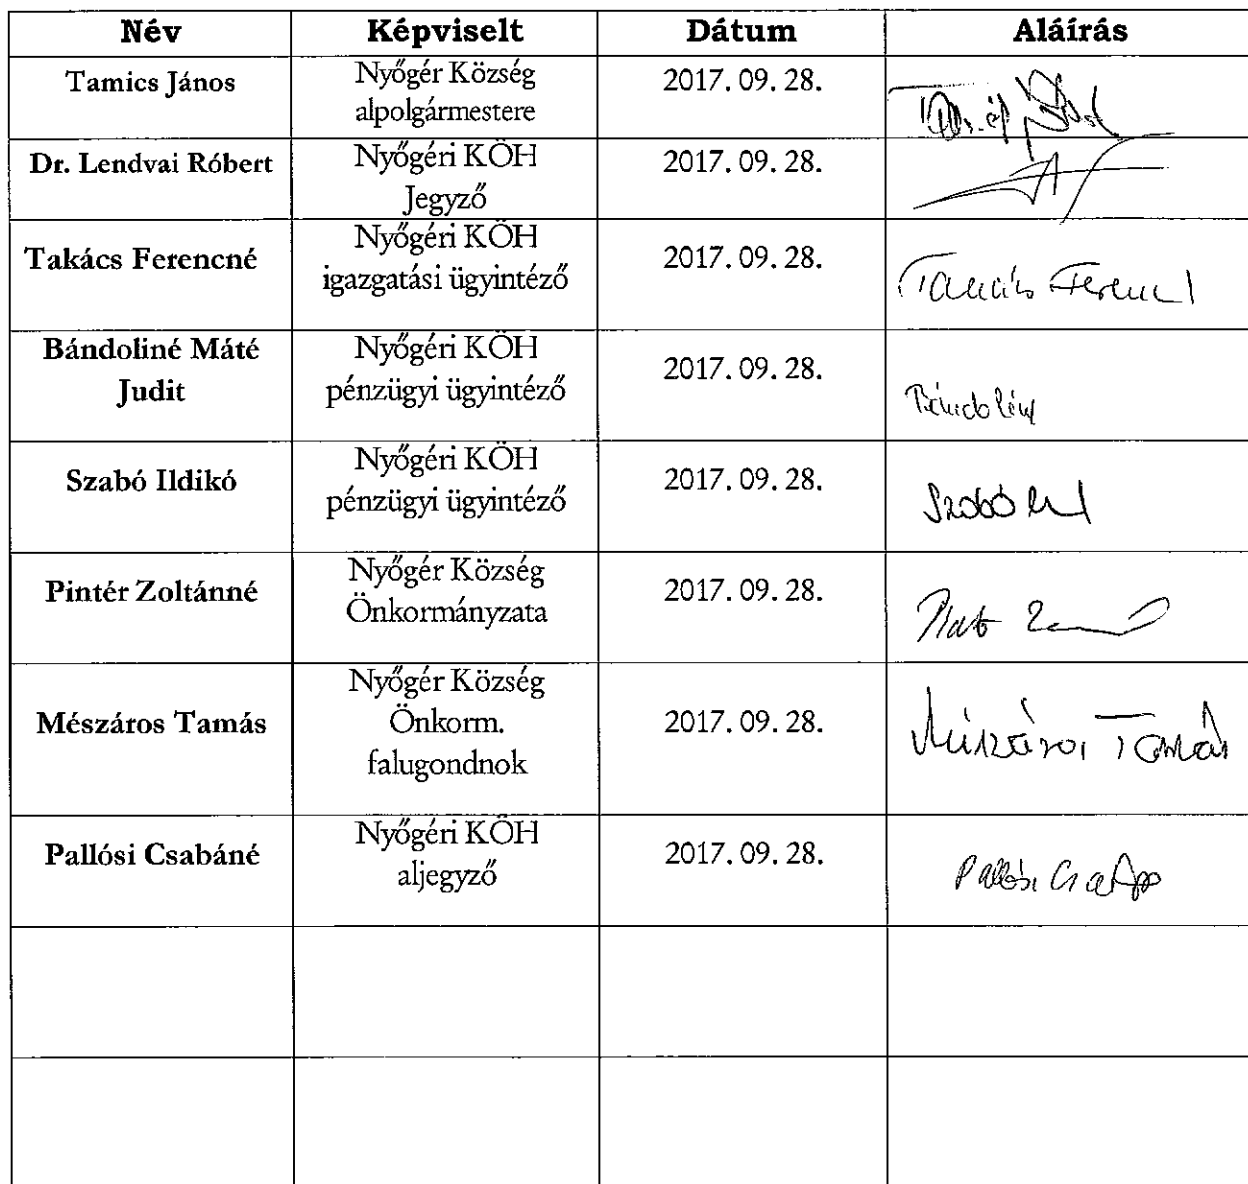 Név Képviselt Dátum Aláírás
Tamics János Nyőgér Község alpolgármestere 2017. 09. 28.
Dr. Lendvai Róbert Nyőgéri KÖH Jegyző 2017. 09. 28.
Takács Ferencné Nyőgéri KÖH igazgatási ügyintéző 2017. 09. 28. Takács Ferenc
Bándoliné Máté Judit Nyőgéri KÖH pénzügyi ügyintéző 2017. 09. 28. Bándoliné
Szabó Ildikó Nyőgéri KÖH pénzügyi ügyintéző 2017. 09. 28. Szabó
Pintér Zoltánné Nyőgér Község Önkormányzata 2017. 09. 28.
Mészáros Tamás Nyőgér Község Önkorm. falugondnok 2017. 09. 28. Mészáros Tamás
Pallósi Csabáné Nyőgéri KÖH aljegyző 2017. 09. 28. Pallósi